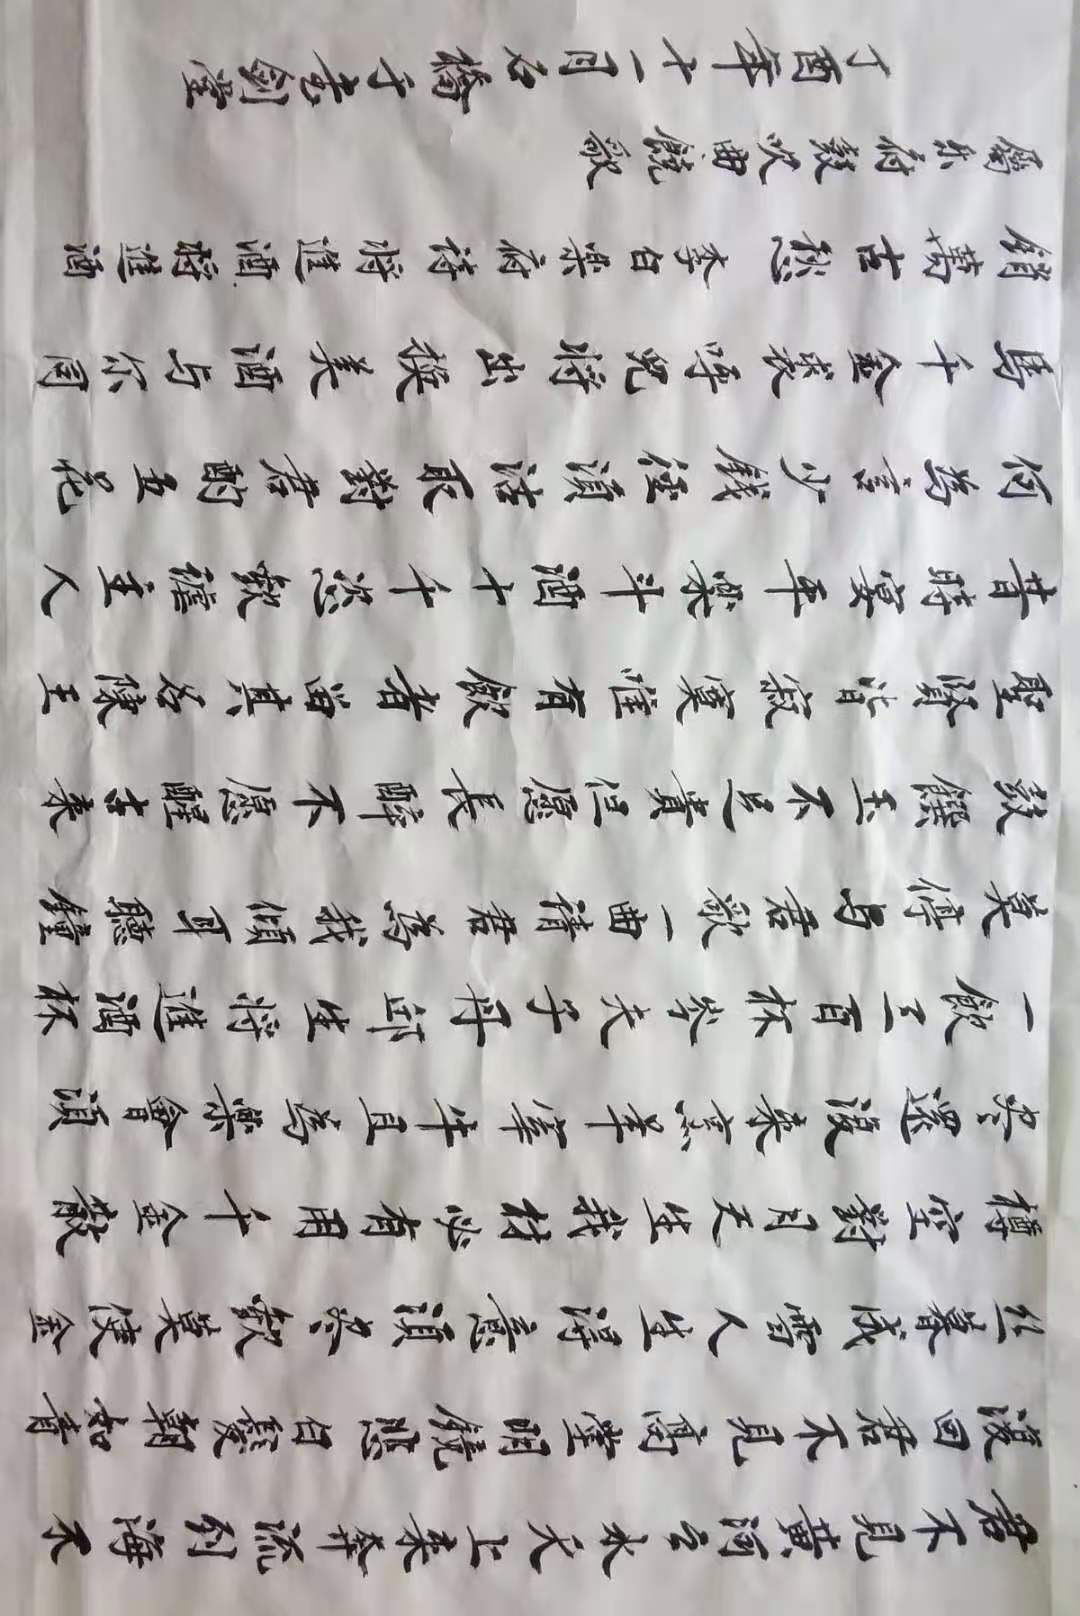 君不見黃河之水天上来奔流到海不
復回君不見高堂明鏡悲白髮朝如青
丝暮成雪人生得意須尽歡莫使金
樽空對月天生我材必有用千金散
尽還復来烹羊宰牛且為樂會須
一飲三百杯岑夫子丹邱生将進酒杯
莫停与君歌一曲请君為我傾耳聽鐘
鼓饌玉不足貴但愿長醉不愿醒古来
聖賢皆寂寞唯有飲者留其名陳王
昔時宴平樂斗酒十千恣歡謔主人
何為言少钱徑須沽取對君酌五花
馬千金裘呼兒将出换美酒与尔同
銷萬古愁 李白樂府诗将進酒将進酒
屬乐府鼓吹曲饒歌
丁酉年十一月石橋于书劍堂